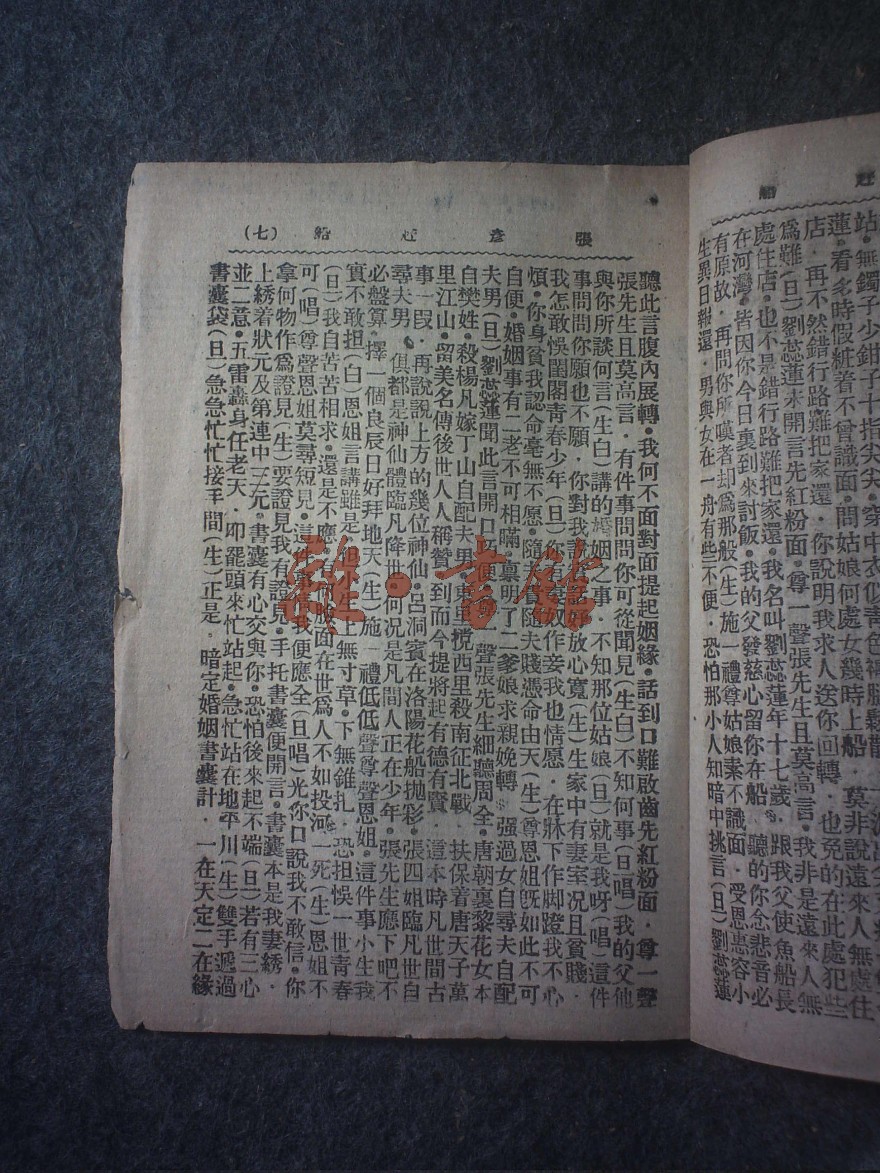 赶船
站。無鐲子少鉗子十指尖尖。穿中衣似靑色褲腿鬆散
蓮。看多時假粧着不曾識面。問姑娘何處女幾時上船。莫非說遠來人無處住
店。再不然錯行路難把家還。你說明我求人送你回轉。也免的在此處犯些
爲難(旦)劉蕊蓮未開言先紅粉面。尊一聲張先生且莫高言。我非是遠來人無
處住店。也不是錯行路難把家還。我名叫劉蕊蓮年十七歲。跟我父使魚船長
在河灣。皆因你今日裏到來討飯。我的父發慈心留你在船。聽的你念悲音必
有原故。再問你所嘆者却爲那般(生)施一禮尊姑娘素不識面。受恩惠容小
生異日報還。男與女在一舟有些不便。恐怕那小人知暗中挑言(旦)劉蕊蓮
張彥赶船(七)
聽此言腹內展轉。我何不面對面提起姻緣。話到口難啟齒先紅粉面。尊一聲
張先生且莫高言。有件事問問你可從聞見(生白)不知何事(旦唱)我的父他
與你所談何言(生白)講的婚姻之事。不知那位姑娘(旦)就是我呀(唱)這件
事問問你願也不願。你對我說實話好放心寬(生)生家中有妻室况且貧賤。
我怎敢悞閨閣青春少年(旦)你有妻奴作妾我也情愿。在牀下作脚蹬我不心
煩。你身貧我認命毫無不愿。隨夫貴隨夫賤憑命由天(生)尊恩姐旣如此不可
自便。婚姻事有二老不可相瞞。禀明了二爹娘求親娩轉。强過女自尋夫自配
夫男(旦)劉蕊蓮聞此言開口便說。聲張先生細聽周全。唐朝裏黎花女本
自樊姓。殺楊凡嫁丁山自配夫男。東里攪西里殺南征北戰。扶保着唐天子萬
里江山。留美名傳後世人人稱贊。到而今提將起有德有賢。這本時凡世間古
事一叚。再說說上方的幾位神仙。呂洞賓在洛陽花船抛彩。張四姐臨凡世自
尋夫男。俱都是神仙體臨凡降世。何况是凡間人正在少年。張先生應下吧不
必盤算。擇一個良辰日好拜地天(生)施一禮低低聲尊聲恩姐。這件事小生我
實不敢担(白)恩姐言講雖是。但小生上無寸草。下無錐扎。恐担悞一世靑春
(旦)我自苦苦相求。還是不應。有何臉面在世爲人不如投河一死(生)恩姐不
可(唱)尊聲恩姐莫尋短見。這件事我便應全(旦唱)光你口說我不敢信。你
拿何物作爲證見(生)要證見我有證見。手托書囊便開言。書囊本是我妻綉。
上綉着狀元及第連中三元。書囊有心交與你。恐怕後來起不端(旦)若有三心
並二意。五雷轟身任老天。叩罷頭來忙站起。急忙站在地平川(生)雙手遞過
書囊袋(旦)急急忙忙接手間(生)正是。暗定婚姻書囊計。一在天定二在緣
雜·書館